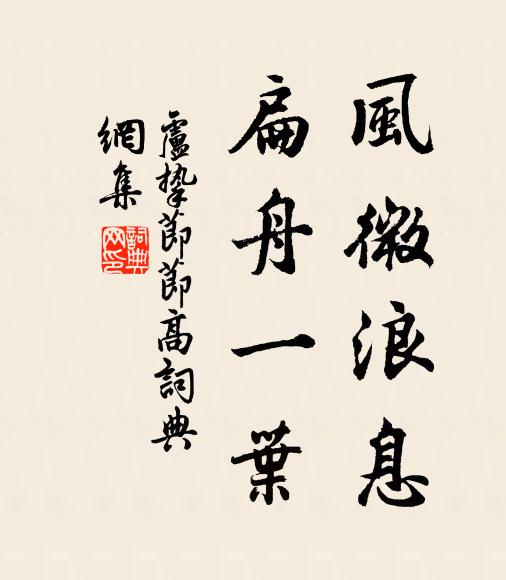 風微浪息
扁舟一葉
盧摯節節高詞典
網集
詞典網印